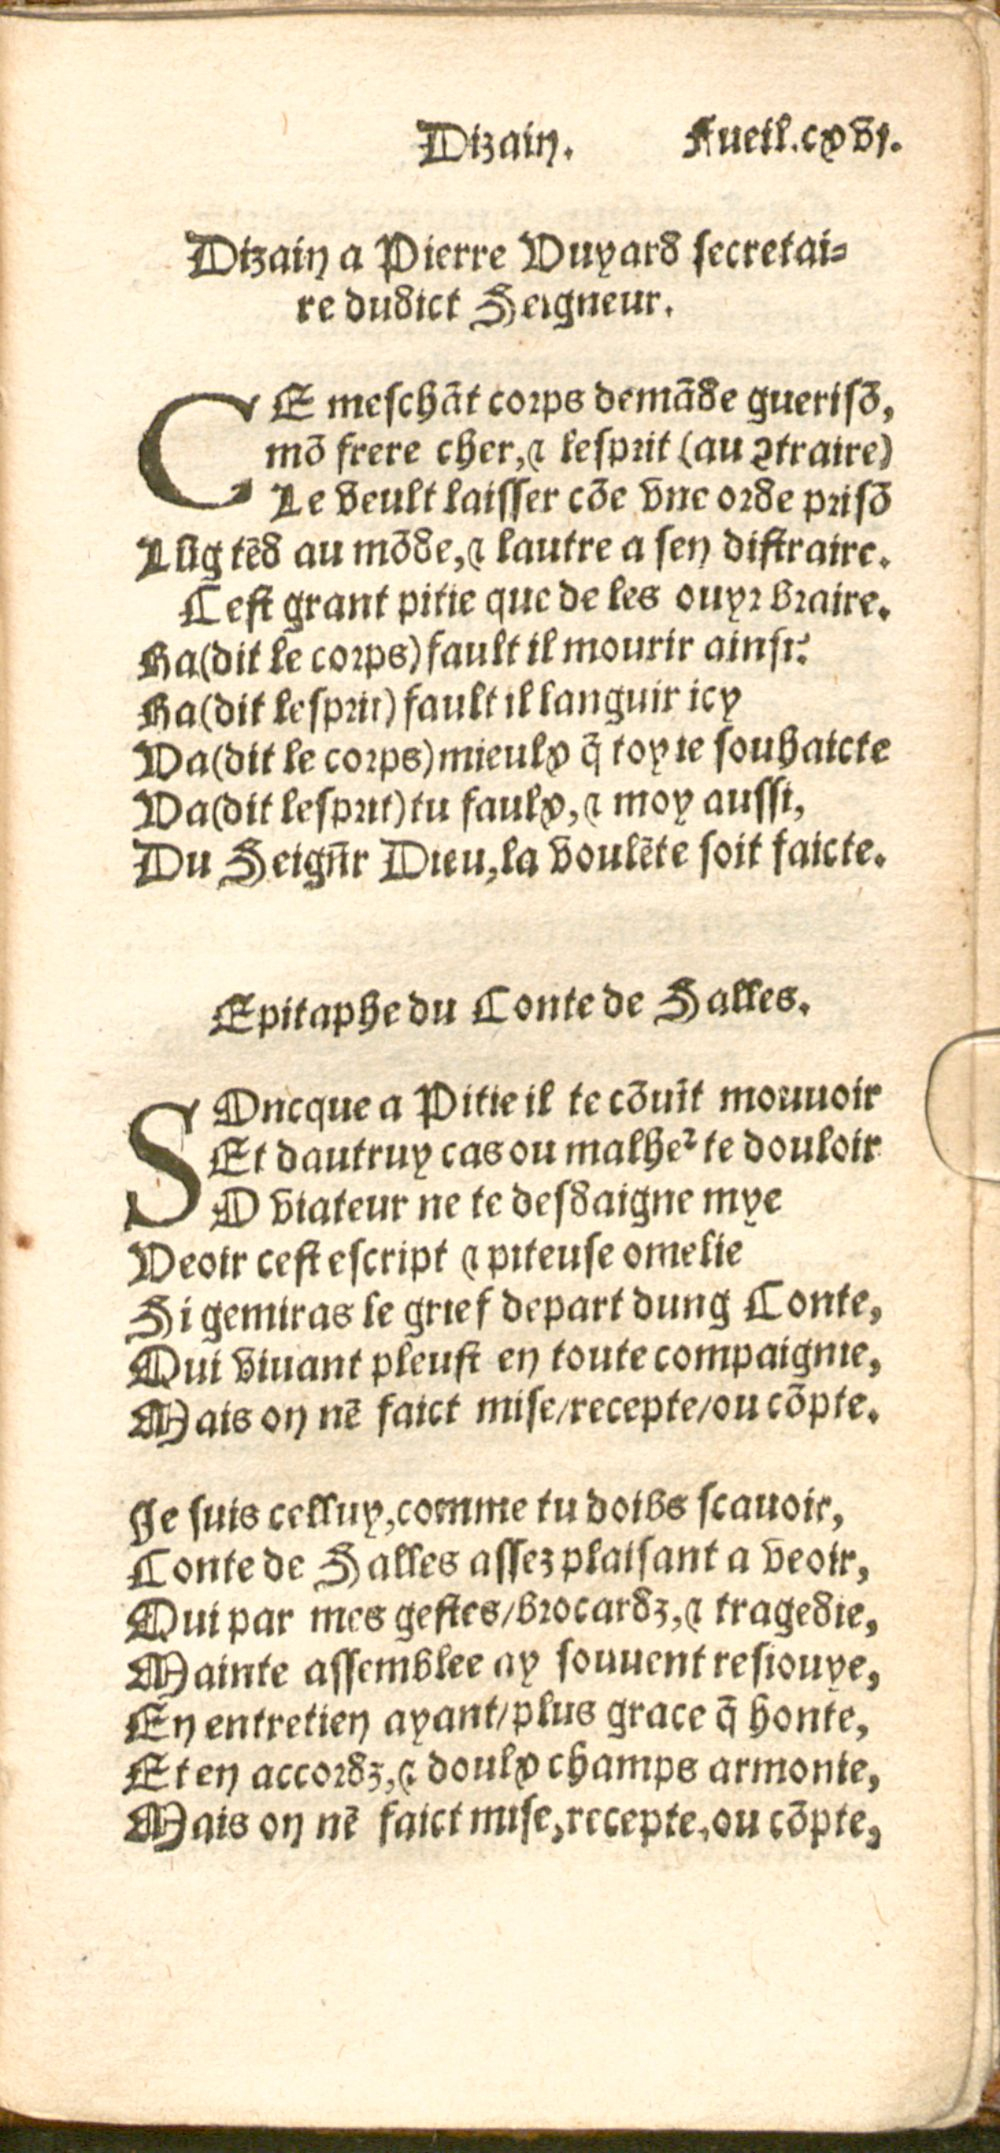 Dizain. Fueil.cxvj.
Dizain a Pierre Vuyard secretai-
re dudict Seigneur.
CE meschãt corps demãde guerisõ,
mõ frere cher, ⁊ lesprit (au ꝯtraire)
Le veult laisser cõe vne orde prisõ
Lũg tẽd au mõde, ⁊ lautre a sen distraire.
Cest grant pitie que de les ouyr braire.
Ha (dit le corps) fault il mourir ainsi?
Ha (dit lesprit) fault il languir icy
Va (dit le corps) mieulx q̃ toy ie souhaicte
Va (dit lesprit) tu faulx, ⁊ moy aussi,
Du Seigñr Dieu, la voulẽte soit faicte.
Epitaphe du Conte de Salles.
SOncque a Pitie il te cõuĩt mouuoir
Et dautruy cas ou malheꝛ te douloir
O viateur ne te desdaigne mye
Veoir cest escript ⁊ piteuse omelie
Si gemiras le grief depart dung Conte,
Qui viuant pleust en toute compaignie,
Mais on nẽ faict mise/recepte/ou cõpte.
Je suis celluy, comme tu doibs scauoir,
Conte de Salles assez plaisant a veoir,
Qui par mes gestes/brocardz, ⁊ tragedie,
Mainte assemblee ay souuent resiouye,
En entretien ayant/plus grace q̃ honte,
Et en accordz, ⁊ doulx champs armonie,
Mais on nẽ faict mise, recepte, ou cõpte,